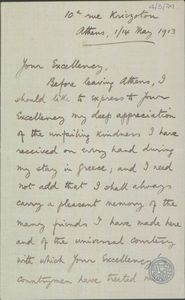 10a rue Kriezotou
Athens, 1/14 May 1913
Your Excellency,
Before leaving Athens, I
should like to express to Your
Excellency my deep appreciation
of the unfailing kindness I have
received on every hand during
my stay in Greece; and I need
not add that I shall always
carry a pleasant memory of the
many friends I have made here
and of the universal courtesy
with which Your Excellency's
countrymen have treated me.